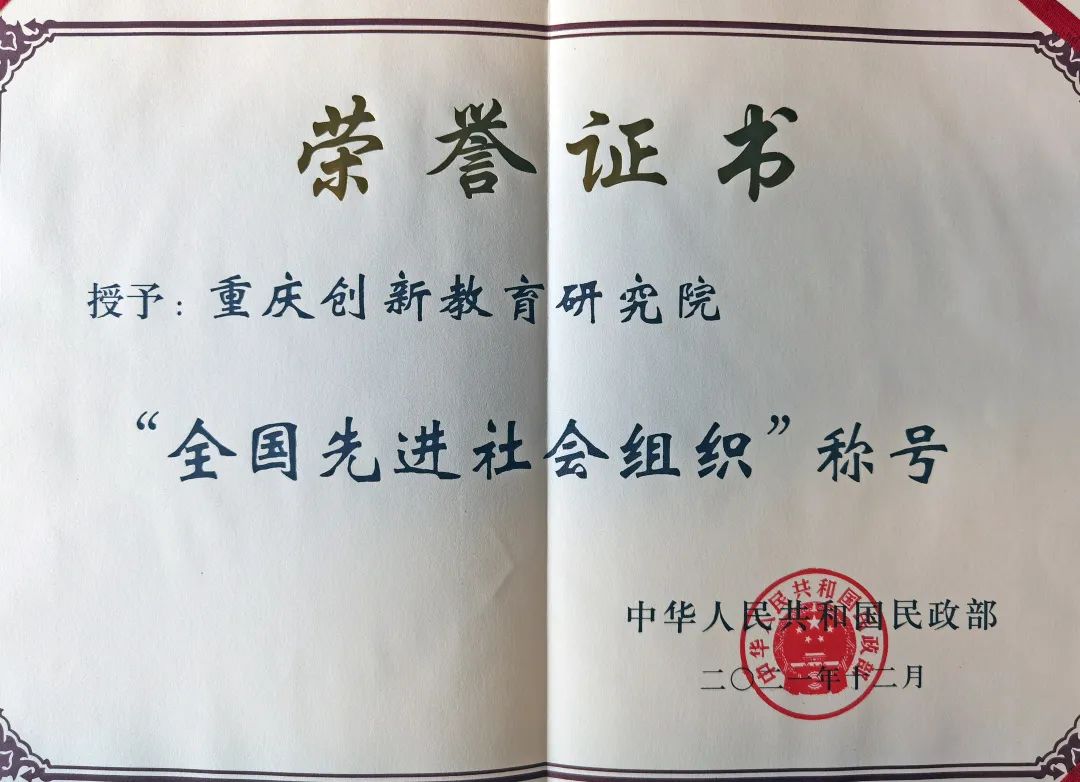 荣誉证书
授予：重庆创新教育研究院
“全国先进社会组织”称号
中华人民共和国民政部
二〇二一年十二月
中华人民共和国民政部